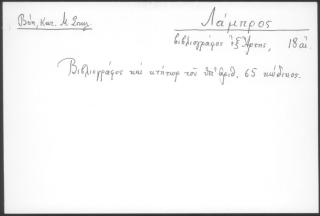 Βέη, Κατ. Μ. Σπηλ.
Λάμπρος
βιβλιογράφος ἐξ Ἄρτης, 18 αἰ.
Βιβλιογράφος καὶ κτήτωρ τοῦ ὑπ' ἀριθ. 65 κώδικος.